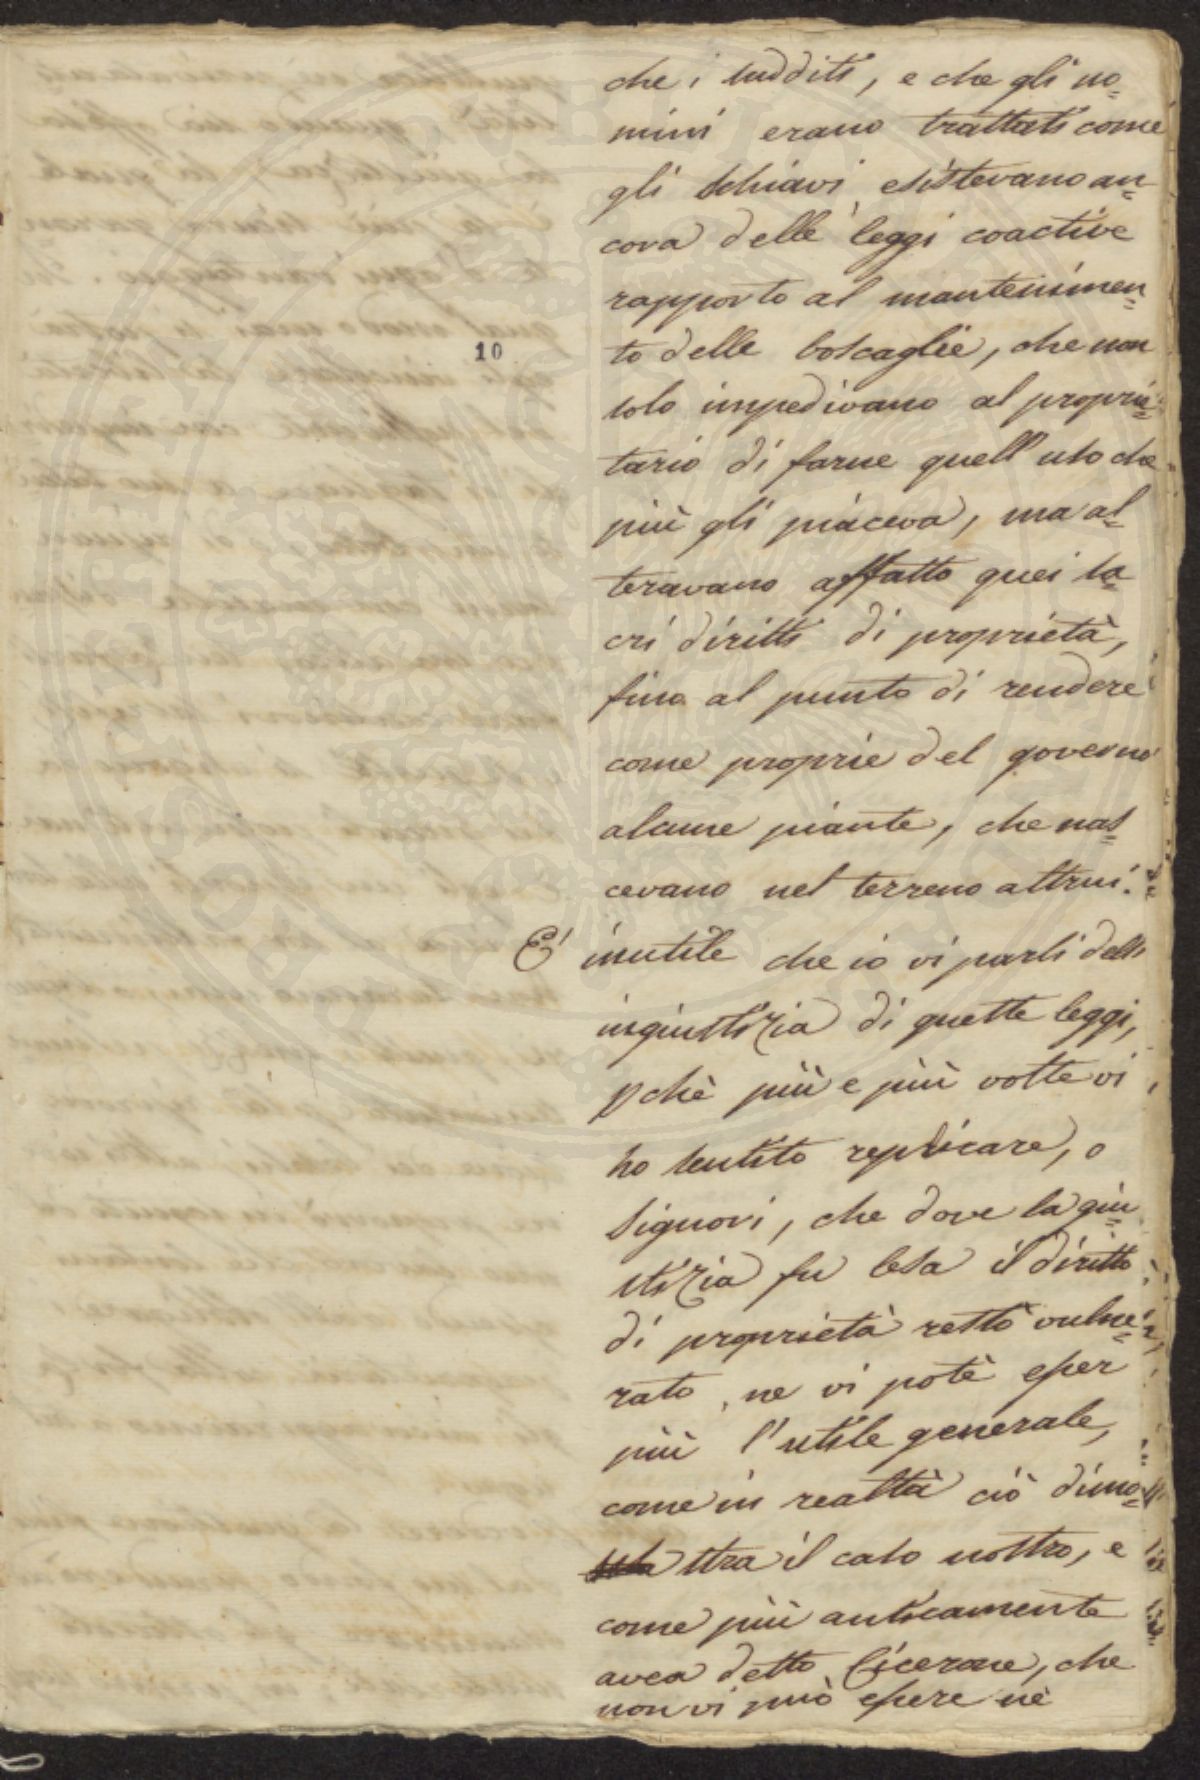 che i sudditi, e che gli uo=
mini erano trattati come
gli schiavi, esistevano an=
cora delle leggi coactive
rapporto al mantenimen=
10
to delle boscaglie, che non
solo impedivano al proprie=
tario di farne quell'uso che
più gli piaceva, ma al=
teravano affatto quei sa=
cri diritti di proprietà,
fino al punto di rendere
come proprie del governo
alcune piante, che nas=
cevano nel terreno altrui.
E' inutile che io vi parli dell'
ingiustizia di queste leggi,
pchè più e più volte vi
ho sentito replicare, o
Signori, che dove la giu=
stizia fu lesa il diritto
di proprietà restò vulne=
rato, ne vi potè esser
più l'utile generale,
come in realtà ciò dimo=
stra il caso nostro, e
come più anticamente
avea detto Cicerone, che
non vi può essere nè